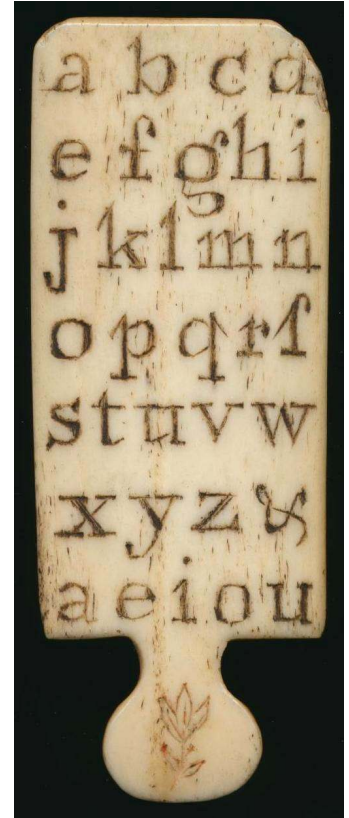 a b c d
e f g h i
j k l m n
o p q r ſ
s t u v w
x y z &
a e i o u